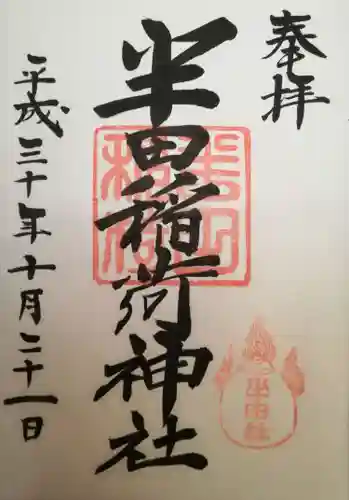 奉拝
半田稲荷神社
平成三十年十月二十一日
半田稲荷
半田社